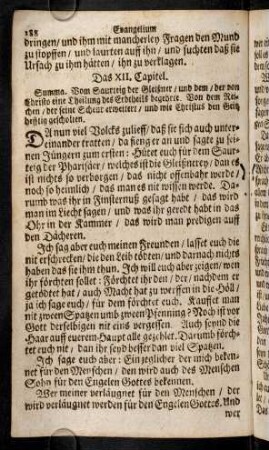 188 Evangelium
dringen/ und ihm mit mancherley Fragen den Mund
zu stopffen/ und laurten auff ihn/ und suchten daß sie
Ursach zu ihm hätten/ ihn zu verklagen.
Das XII. Capitel.
Summa. Vom Saurteig der Gleißner/ und dem/ der von
Christo eine Theilung des Erbtheils begehrte. Von dem Rei-
chen/ der seine Scheur erweitert/ und wie Christus den Geitz
hefftig gescholten.
DA nun viel Volcks zulieff/ daß sie sich auch unter-
einander tratten/ da fieng er an und sagte zu sei-
nen Jüngern zum ersten: Hütet euch für dem Saur-
teig der Pharisäer/ welches ist die Gleißnerey/ dan es
ist nichts so verborgen/ das nicht offenbahr werde/
noch so heimlich/ das man es nit wissen werde. Da-
rumb was ihr in Finsternuß gesagt habt/ das wird
man im Liecht sagen/ und was ihr geredt habt in das
Ohr in der Kammer/ das wird man predigen auff
den Dächeren.
Ich sag aber euch meinen Freunden/ lasset euch die
nit erschrecken/ die den Leib tödten/ und darnach nichts
haben das sie ihm thun. Ich will euch aber zeigen/ wen
ihr förchten sollet: Förchtet ihr den/ der/ nachdem er
getödtet hat/ auch Macht hat zu werffen in die Höll/
ja ich sage euch/ für dem förchtet euch. Kauffet man
nit zween Spatzen umb zween Pfenning? Noch ist vor
Gott derselbigen nit eins vergessen. Auch seynd die
Haar auff euerem Haupt alle gezehlet. Darumb förch-
tet euch nit/ dan ihr seyd besser dan viel Spatzen.
Ich sage euch aber: Ein jeglicher der mich beken-
net für den Menschen/ den wird auch des Menschen
Sohn für den Engelen Gottes bekennen.
Wer meiner verläugnet für den Menschen/ der
wird verläugnet werden für den Engelen Gottes. Und
wer